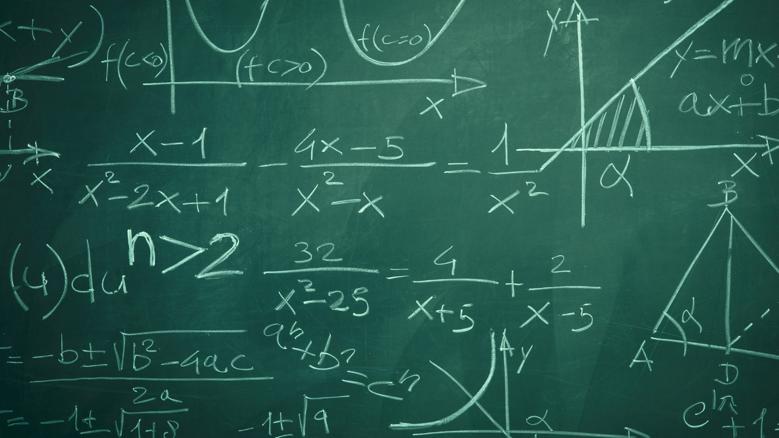 x+y)
f(c<0)
(f c>0)
f(c=0)
x
y
y=mx
ax+b
α
x
B
x
y
x-1/x²-2x+1 - 4x-5/x²-x = 1/x²
(u)du
n>2
32/x²-25 = 4/x+5 + 2/x-5
B
α
A
D
=-b±√b²-4ac/2a
aⁿ+bⁿ=cⁿ
=-1±√1+8
-1±√9
y
α
e^iπ+1